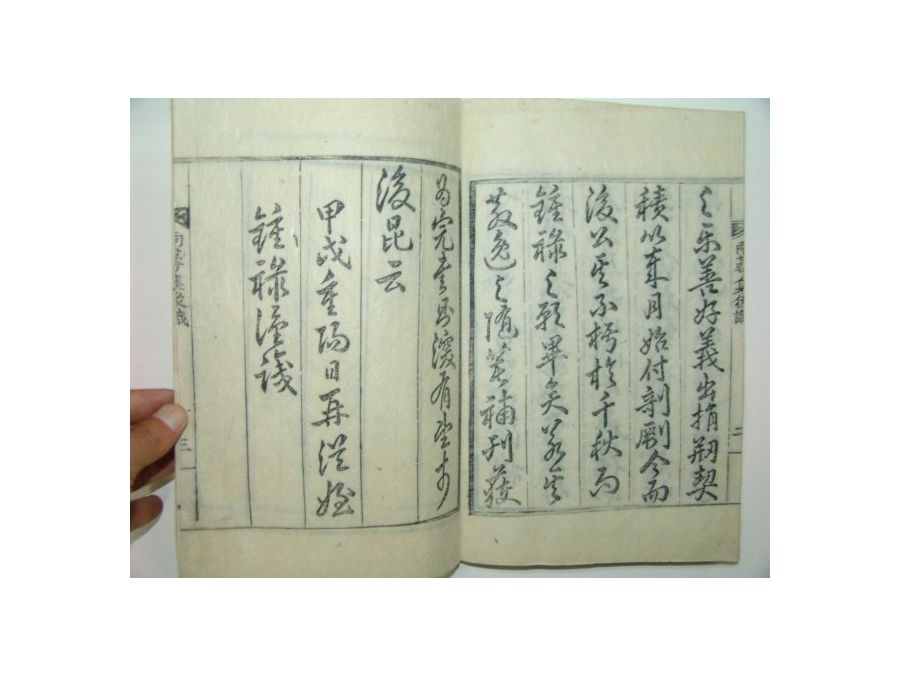 之樂善好義出捐剏契
積以年月始付剞劂今而
後公其不朽於千秋而
鍾祿之願畢矣若其
散逸之隨善補刊獲
為完壹則深有望於
後昆云
甲戌重陽日再從姪
鍾祿謹識
集後識
二
三